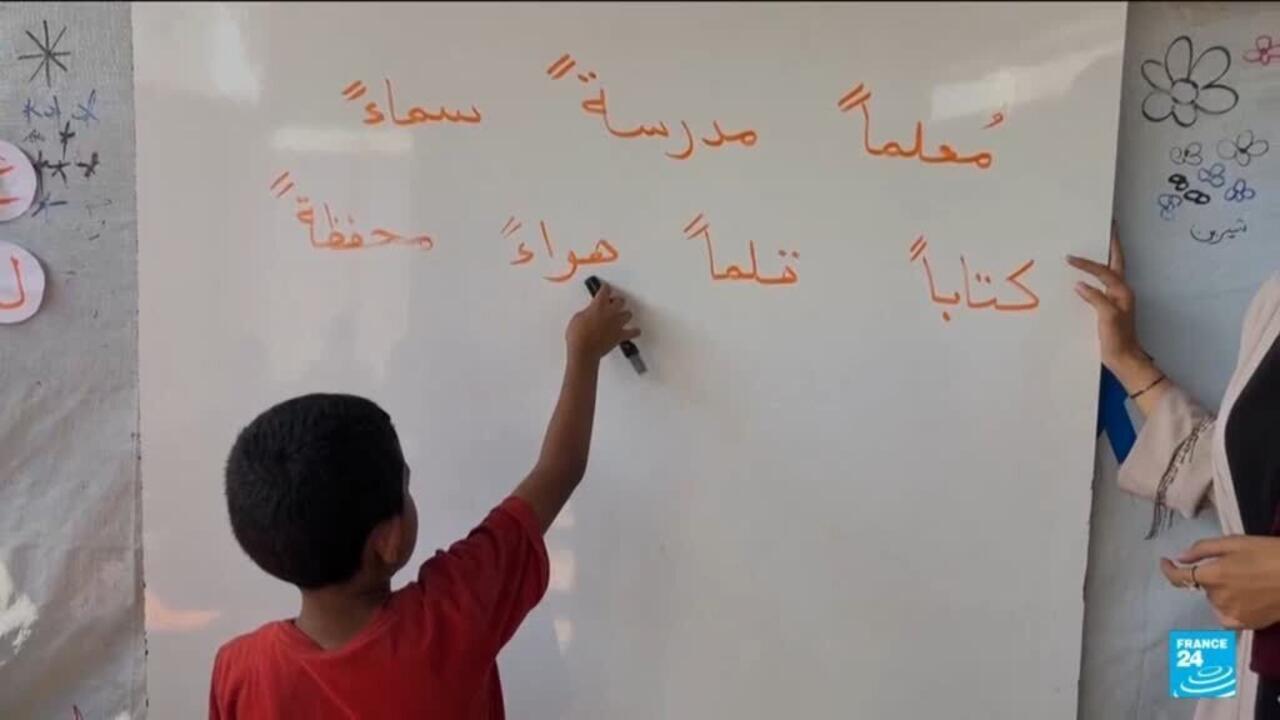 مُعلماً مدرسةً سماءً
كتاباً قلماً هواءً محفظةً
شيرين
ل
FRANCE
24